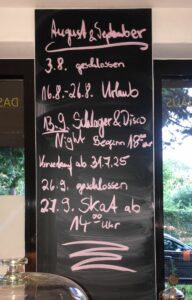 August & September
3.8. geschlossen
16.8.-26.8. Urlaub
13.9. Schlager & Disco
Night Beginn 18⁰⁰ Uhr
Vorverkauf ab 31.7.25
26.9. geschlossen
27.9. Skat ab
14⁰⁰ Uhr
DAS